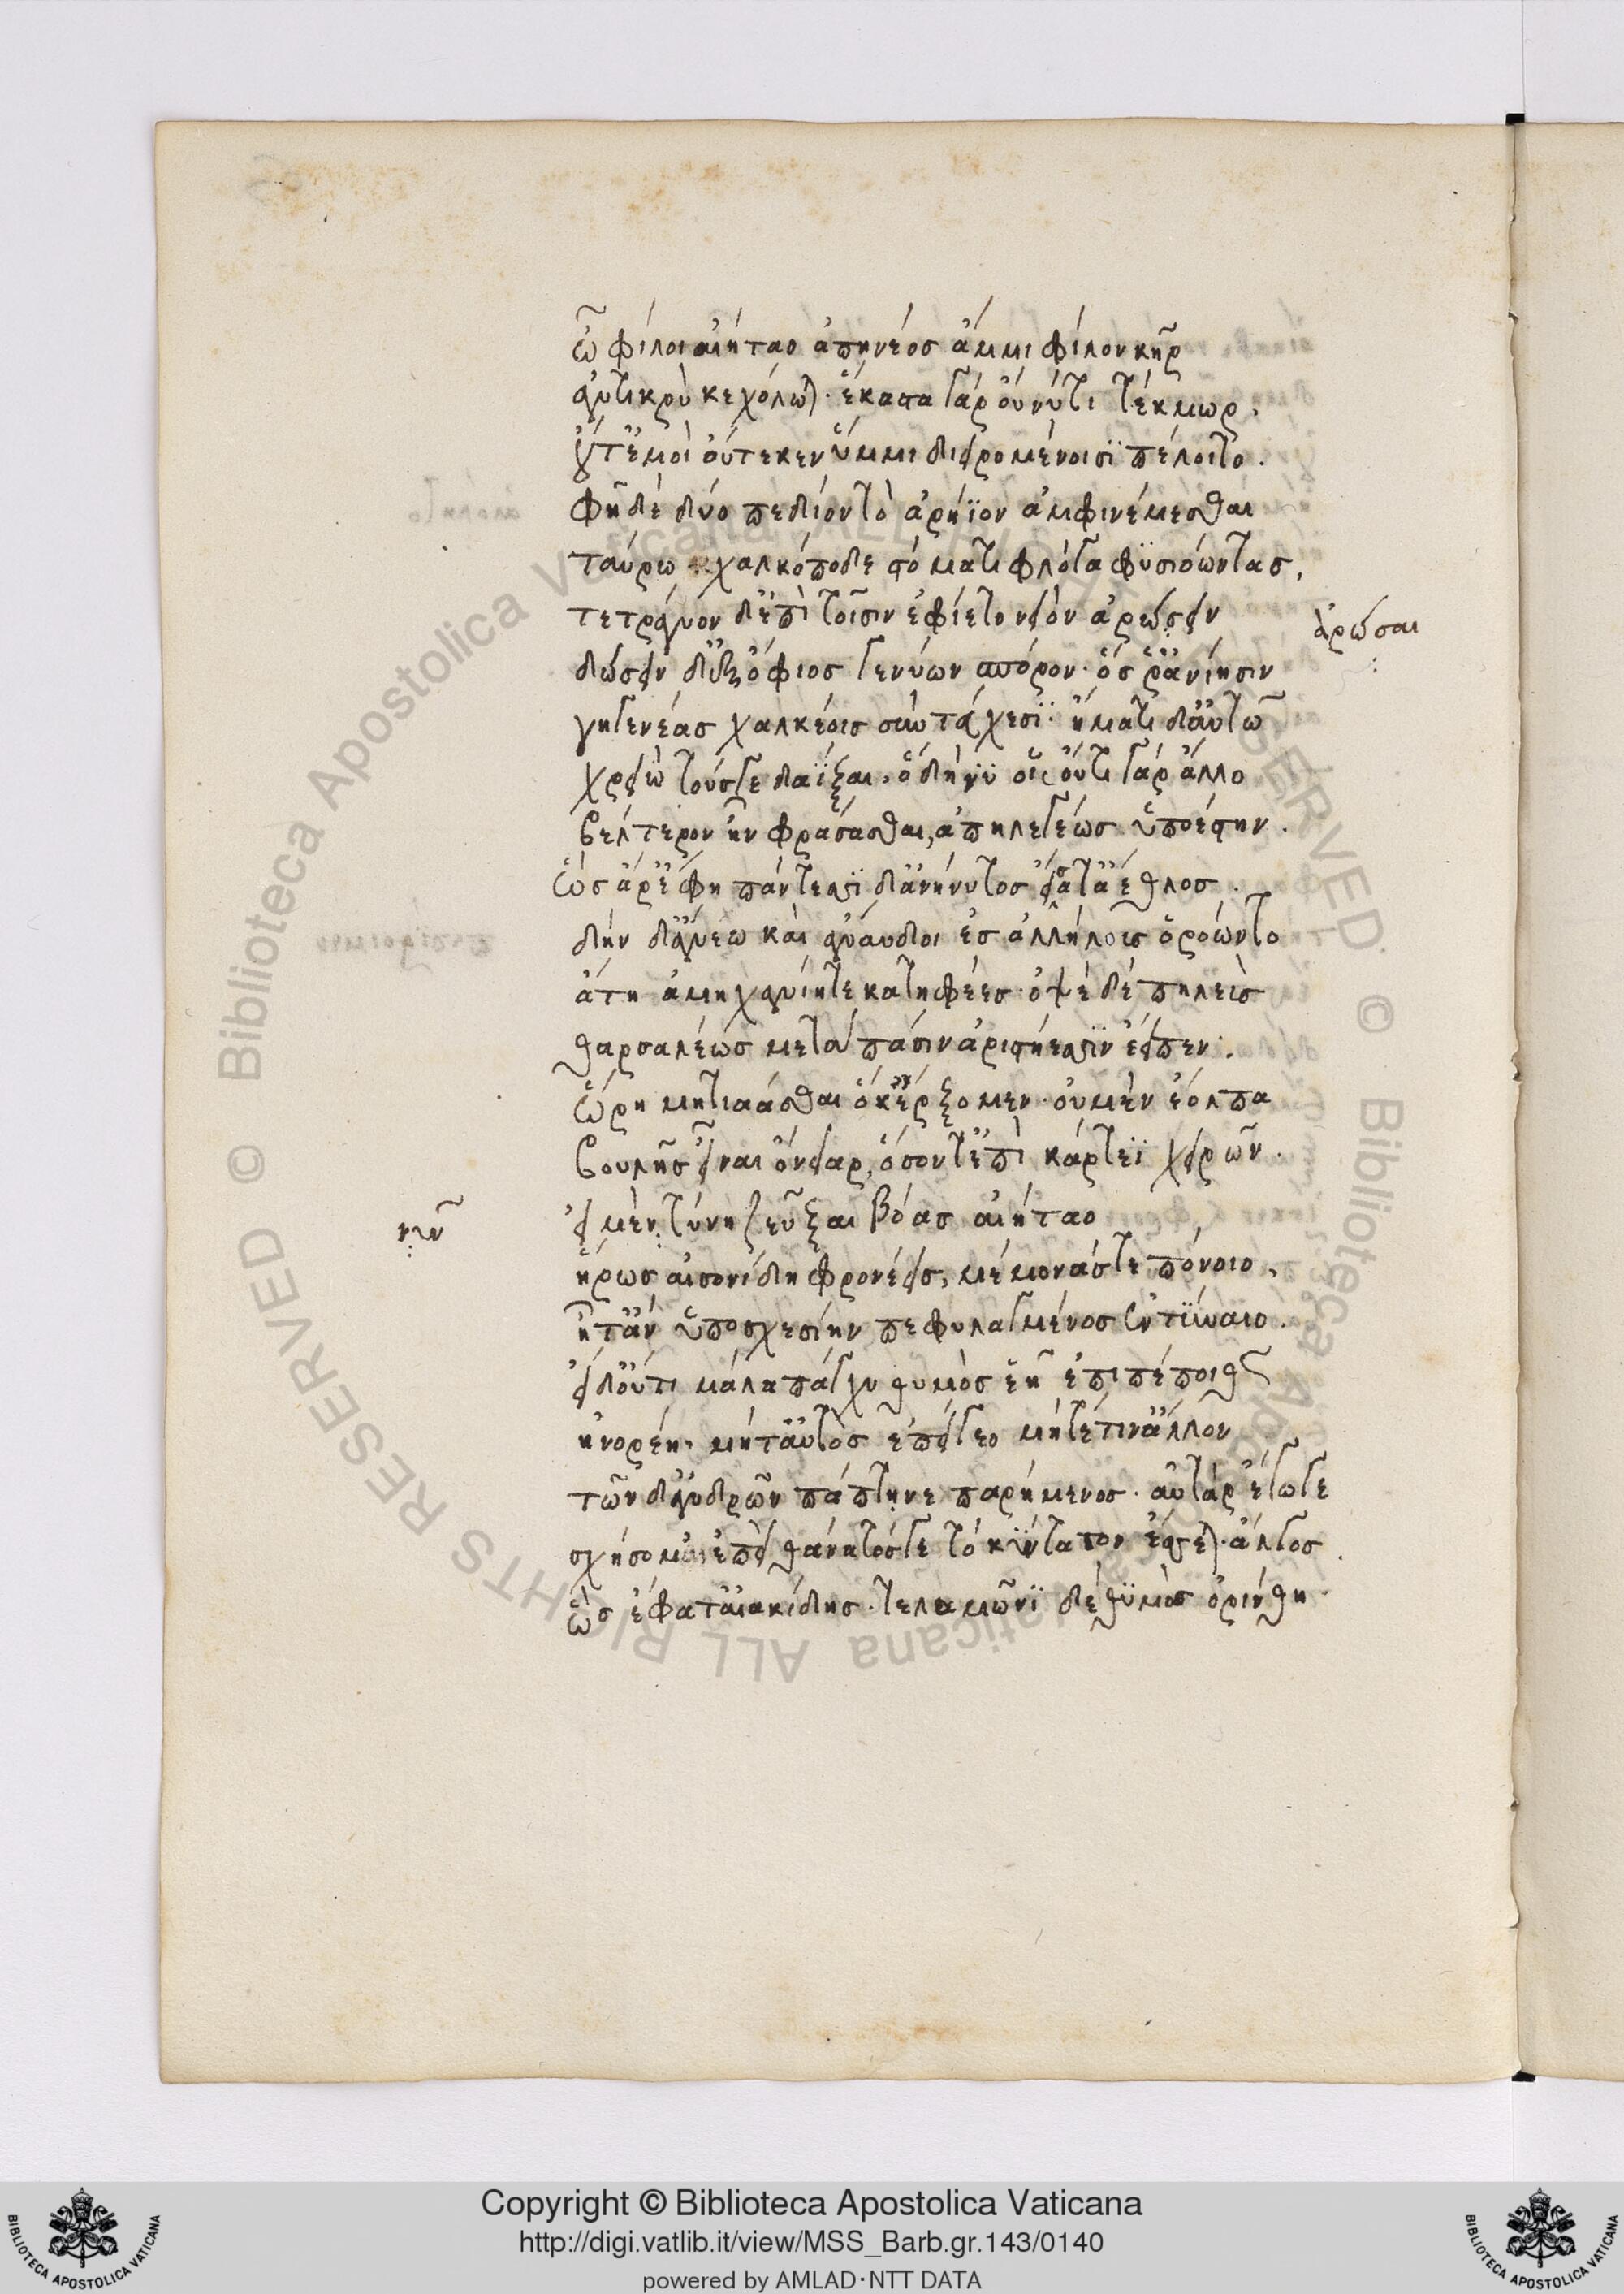 ὦ φίλοι αἰήταο ἀπηνέος ἄμμι φίλον κῆρ
ἀντικρὺ κεχόλωται· ἕκαστα γὰρ οὔ νύ τι τέκμωρ.
οὔτ' ἐμοὶ οὔτε κεν ὔμμι διειρομένοισι πέλοιτο.
φῆ δὲ δύο πεδίον τὸ ἀρήϊον ἀμφινέμεσθαι
ταύρω χαλκόποδε στόματι φλόγα φϋσιόωντας,
τετράγυον δ' ἐπὶ τοῖσιν ἐφίετο νειὸν ἀρώσειν
ἀρώσαι
δώσειν δ' ἐξ ὄφιος γενύων σπόρον· ὅς ῥ' ἀνίησιν
γηγενέας χαλκέοις σὺν τεύχεσι· ἤματι δ' αὐτῶ
χρειὼ τούσγε δαΐξαι. ὃ δή νϋ οἱ οὔτι γὰρ ἄλλο
βέλτερον ἦν φράσασθαι, ἀπηλεγέως ὑποέστην.
ὣς ἄρ' ἔφη πάντεσσι δ' ἀνήνυτος εἴσατ' ἄεθλος.
δὴν δ' ἄνεω καὶ ἄναυδοι ἐς ἀλλήλους ὁρόωντο
ἄτη ἀμηχανίη τε κατηφέες· ὀψὲ δὲ πηλεὺς
θαρσαλέως μετὰ πᾶσιν ἀριστήεσσιν ἔειπεν.
ὥρη μητιάασθαι ὅ κ' ἔρξομεν· οὐ μὲν ἔολπα
βουλῆς εἶναι ὄνειαρ, ὅσον τ' ἐπὶ κάρτεϊ χειρῶν.
νῦν
εἰ μὲν τύνη ζεῦξαι βόας αἰήταο
ἥρως αἰσονίδη φρονέεις, μέμονάς τε πόνοιο,
ἦ τ' ἂν ὑποσχεσίην πεφυλαγμένος ἐντύναιο.
εἰ δ' οὔτι μάλα πάγχυ θυμὸς ἑῆ ἐπιπέποιθεν
ἠνορέη, μήτ' αὐτὸς ἐπείγεο μήτέ τιν' ἄλλον
τῶν δ' ἀνδρῶν πάπτηνε παρήμενος. αὐτὰρ ἔγωγε
σχήσομαι ἐπεὶ θάνατός γε τὸ κύντατον ἔσσεται ἄλγος.
ὣς ἔφατ' αἰακίδης. τελαμῶνι δὲ θϋμὸς ὀρίνθη.
Copyright © Biblioteca Apostolica Vaticana
http://digi.vatlib.it/view/MSS_Barb.gr.143/0140
powered by AMLAD·NTT DATA
© Biblioteca Apostolica Vaticana ALL RIGHTS RESERVED
BIBLIOTECA APOSTOLICA VATICANA
BIBLIOTECA APOSTOLICA VATICANA